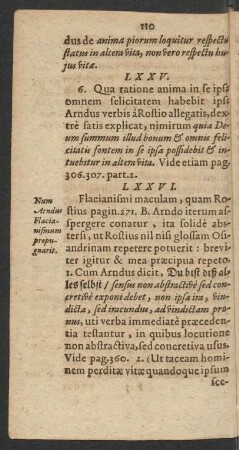 110
dus de anima piorum loquitur respectu
status in altera vita, non vero respectu hu-
jus vitæ.
LXXV.
6. Qua ratione anima in se ipsa
omnem felicitatem habebit ipse
Arndus verbis à Rostio allegatis, dex-
trè satis explicat, nimirum quia De-
um summum illud bonum & omnis feli-
citatis fontem in se ipsa possidebit & in-
tuebitur in altera vita. Vide etiam pag.
306.307. part.2.
LXXVI.
Num
Arndus
Flacia-
nismum
propu-
gnarit.
Flacianismi maculam, quam Ro-
stius pagin.271. B. Arndo iterum as-
pergere conatur, ita solidè abs-
tersi, ut Rostius nil nisi glossam Osi-
andrinam repetere potuerit: brevi-
ter igitur & mea præcipua repeto
1. Cum Arndus dicit, Du bist diß al-
les selbst / sensus non abstractivè sed con-
cretivè exponi debet, non ipsa ira, vin-
dicta, sed iracundus, ad vindictam pro-
nus, uti verba immediatè præceden-
tia testantur, in quibus locutione
non abstractiva, sed concretiva usus.
Vide pag.360. 2. (Ut taceam homi-
nem perditæ vitæ quandoque ipsum
sce-